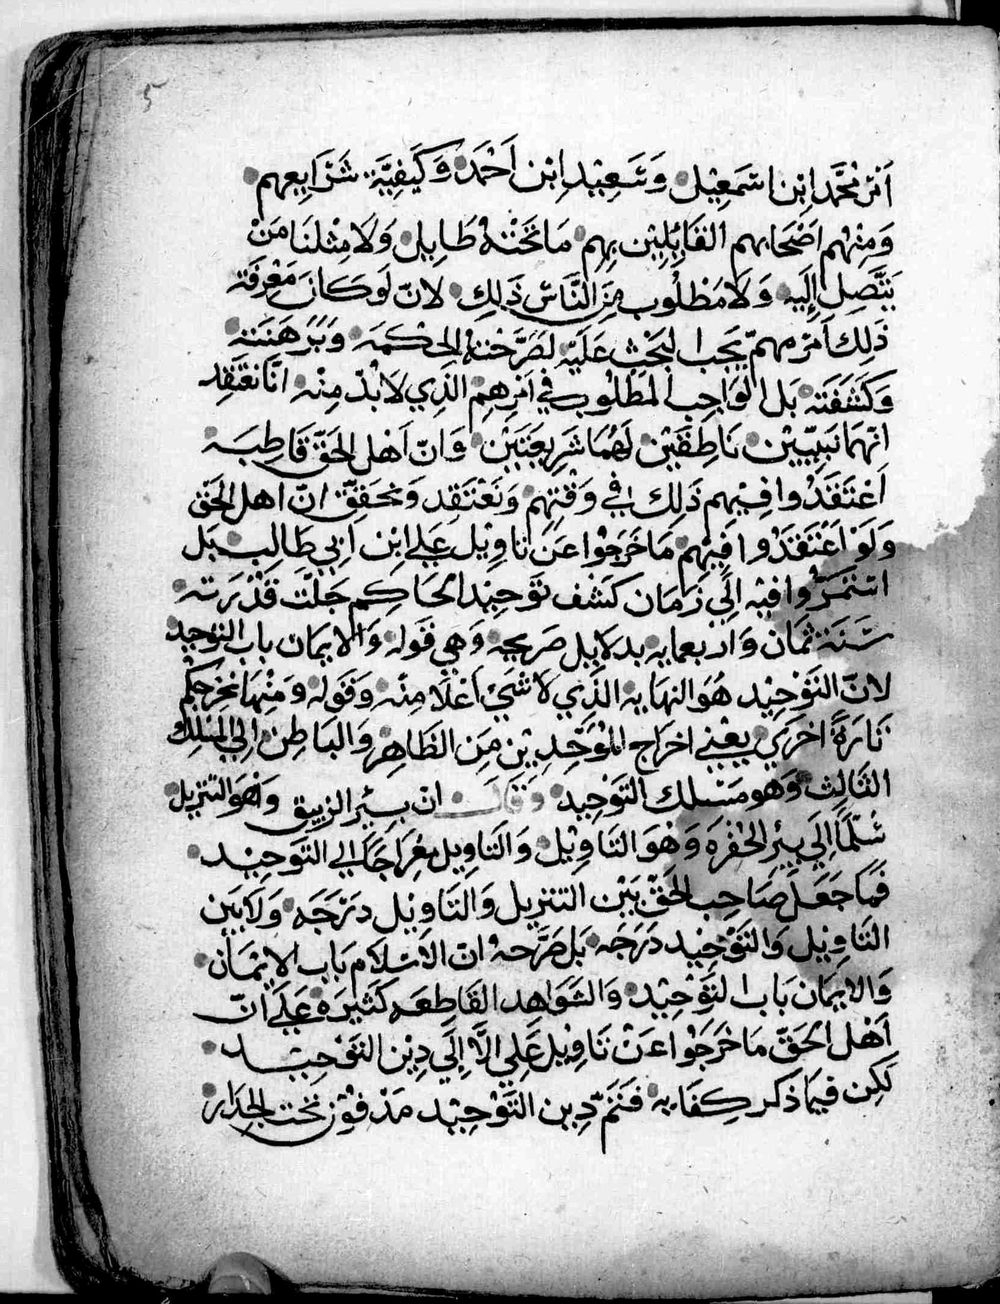 ٥
امر محمد ابن اسمعيل وسعيد ابن احمد وكيفية شرايعهم
ومنهم اصحابهم القايلين بهم ما تحته طايل ولا مثلنا من
يتصل اليه ولا مطلوب من الناس ذلك لان لو كان معرفة
ذلك امر مهم يجب البحث عليه لصرحته الحكمه وبرهنته
وكشفته بل الواجب المطلوب في امرهم الذي لا بد منه انا نعتقد
انهما نبيين ناطقين لهما شريعتين وان اهل الحق قاطبه
اعتقدوا فيهم ذلك في وقتهم ونعتقد ونحقق ان اهل الحق
ولو اعتقدوا فيهم ما خرجوا عن تاويل علي ابن ابي طالب بل
استمروا فيه الي زمان كشف توحيد الحاكم جلت قدرته
سنة ثمان واربعمايه بدلايل صريحه وهي قوله والايمان باب التوحيد
لان التوحيد هو النهايه الذي لا شي اعلا منه وقوله ومنها نخرجكم
تارة اخري يعني اخراج الموحدين من الظاهر والباطن الي المسلك
الثالث وهو مسلك التوحيد وقال ان بير الزيبق وهو التنزيل
سلما الي بير الحفره وهو التاويل والتاويل معراجا الي التوحيد
فما جعل صاحب الحق بين التنزيل والتاويل درجه ولا بين
التاويل والتوحيد درجه بل صرحه ان الاسلام باب الايمان
والايمان باب التوحيد والشواهد القاطعه كثيره علي ان
اهل الحق ما خرجوا عن تاويل علي الا الي دين التوحيد
لكن فيما ذكر كفايه فتم دين التوحيد مدفون تحت الجدار